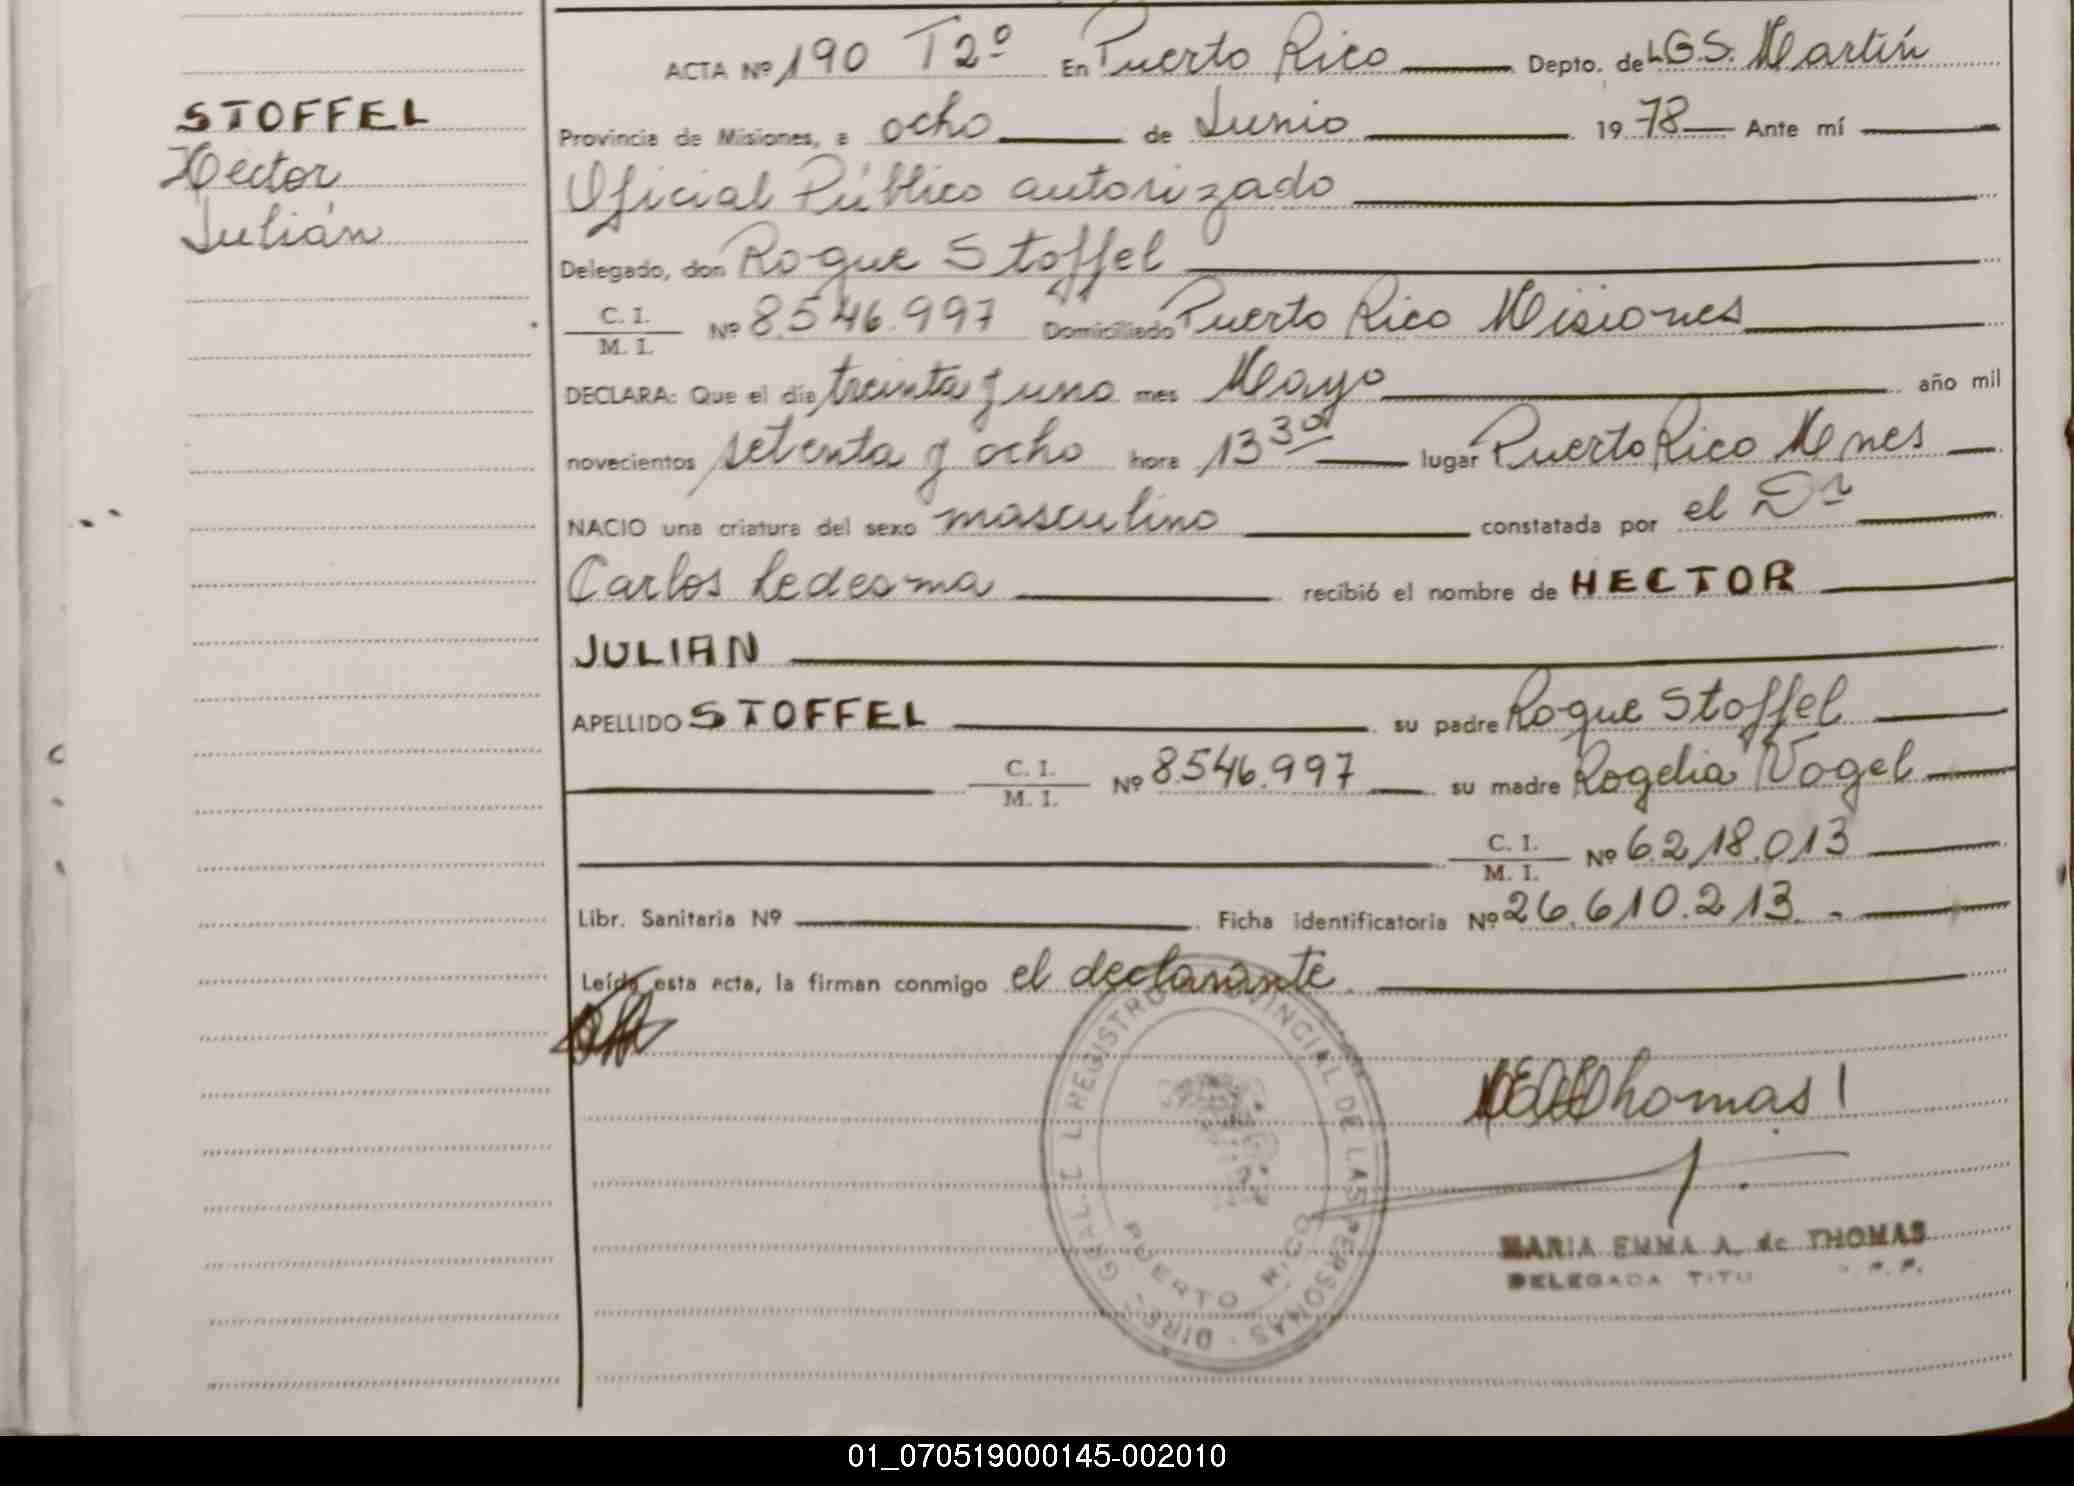 STOFFEL
Hector
Julián
ACTA Nº 190 T2º En Puerto Rico Depto. de L.G.S. Martín
Provincia de Misiones, a ocho de Junio 19 78 Ante mí
Oficial Público autorizado
Delegado, don Roque Stoffel
C. I.
M. I.
Nº 8.546.997 Domiciliado Puerto Rico Misiones
DECLARA: Que el día treinta y uno mes Mayo año mil
novecientos setenta y ocho hora 13 30 lugar Puerto Rico Mnes
NACIO una criatura del sexo masculino constatada por el Dr
Carlos Ledesma recibió el nombre de HECTOR
JULIAN
APELLIDO STOFFEL su padre Roque Stoffel
C. I.
M. I.
Nº 8.546.997 su madre Rogelia Vogel
C. I.
M. I.
Nº 6.218.013
Libr. Sanitaria Nº Ficha identificatoria Nº 26.610.213.-
Leída esta acta, la firman conmigo el declarante
DIREC. GRAL. REGISTRO PROVINCIAL DE LAS PERSONAS
PUERTO RICO
Thomas
MARIA EMMA A. de THOMAS
DELEGADA
01_070519000145-002010